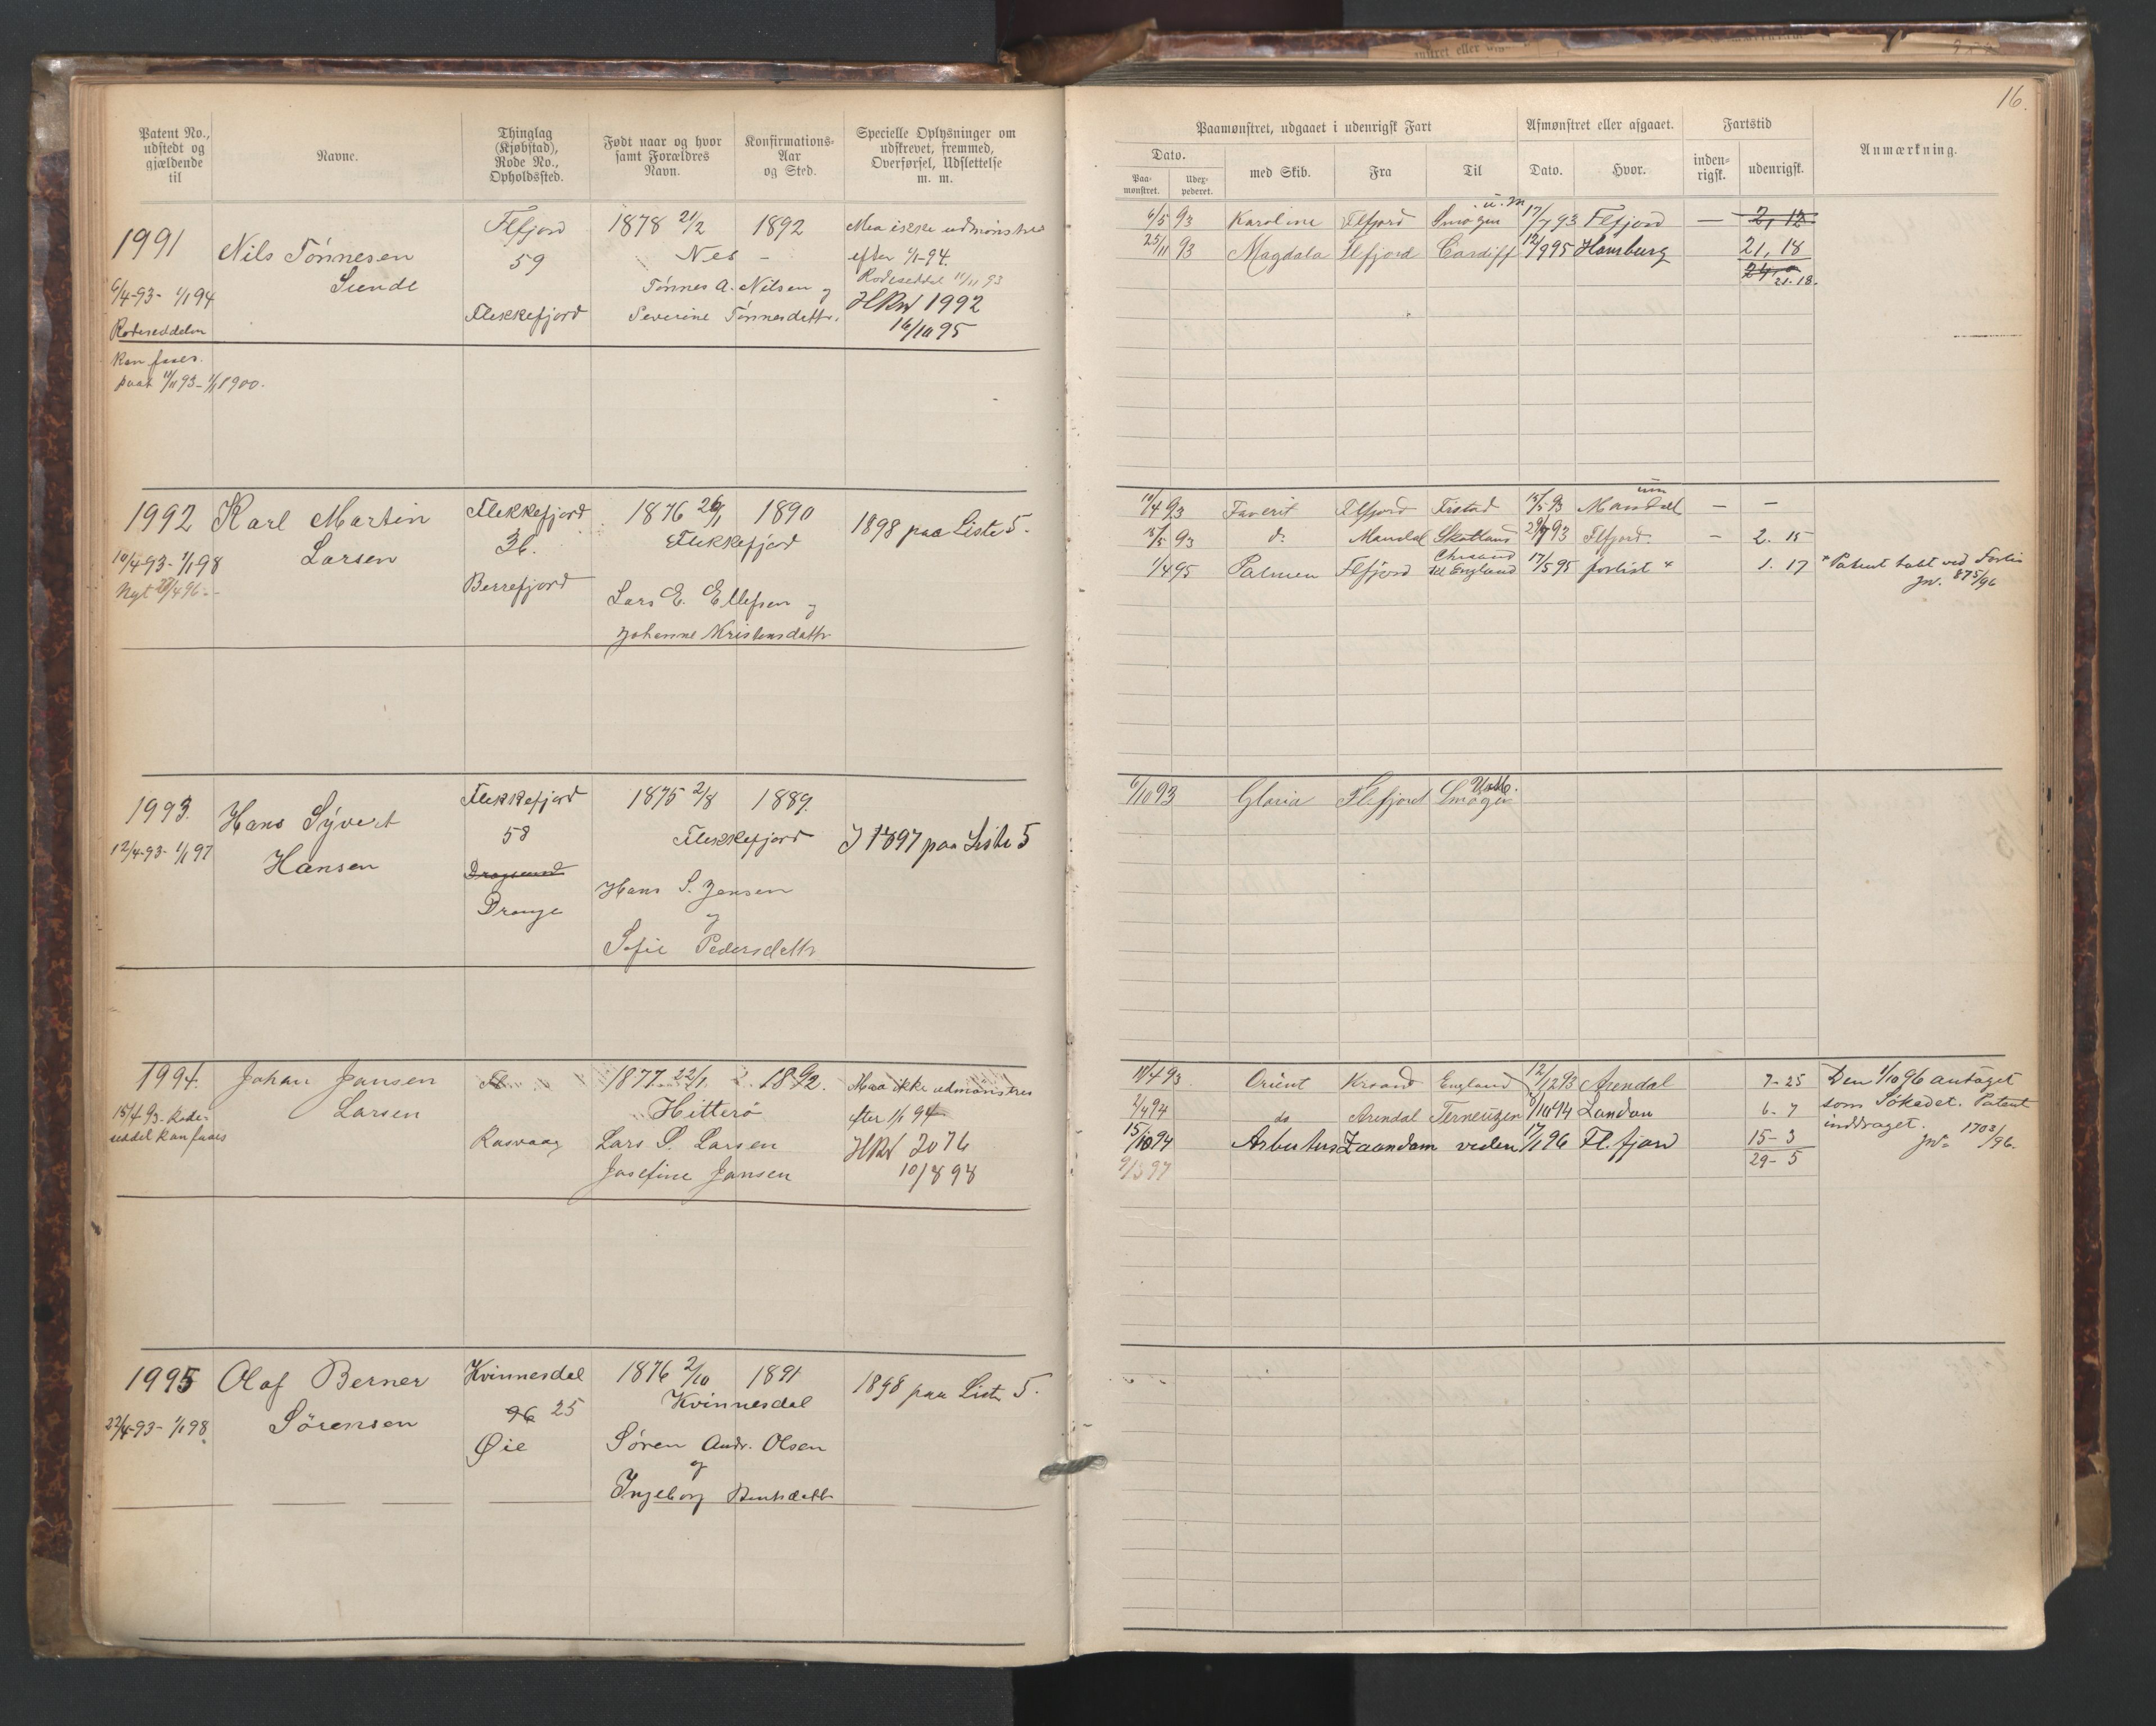 16.
Patent No., udstedt og gjældende til
Navne.
Thinglag (Kjøbstad), Rode No., Opholdssted.
Født naar og hvor samt Forældres Navn.
Konfirmations-Aar og Sted.
Specielle Oplysninger om udskrevet, fremmed, Overførsel, Udslettelse m. m.
Paamønstret, udgaaet i udenrigsk Fart
Afmønstret eller afgaaet.
Fartstid
Anmærkning.
Dato.
Paa-mønstret.
Udex-pederet.
med Skib.
Fra
Til
Dato.
Hvor.
inden-rigsk.
udenrigsk.
1991
6/4-93- 1/1 94
Rodeseddelen
kan faaes.
paat 11/11 93- 1/1 1900.
Nils Tønnesen
Sunde
Flfjord
59
Flekkefjord
1878 21/2
1892
Nes -
Tønnes A. Nilsen og
Severine Tønnesdattr.
Maa ikke udmønstres
efter 1/1-94.
Rodeseddel 11/11 93
HRW 1992
16/10 95
6/5 93 Karoline Flfjord Smøgen u.m 17/7 93 Flfjord — 2, 12
25/11 93 Magdala Flfjord Cardiff 12/9 95 Hamburg 21, 18
21. 18.
1992
10/4-93- 1/1 98
Nyt 27/4 96.-
Karl Martin
Larsen
Flekkefjord
36.
Berrefjord
1876 26/1
1890
Flekkefjord
Lars E. Ellefsen og
Johanne Kristensdattr
1898 paa Liste 5.
10/4 93 Favorit Flfjord Fistad 15/5 93 Mandal um — —
15/5 93 do Mandal Skotland 29/7 93 Flfjord. — 2. 15
1/4 95 Palmen Flfjord Chrsand til England 17/5 95 forlist + 1. 17
+ Patent tabt ved Forlis
Jn. 875/96
1993.
12/4-93- 1/1 97
Hans Syvert
Hansen
Flekkefjord
58
Dragesund
Drange
1875 2/8
1889.
Flekkefjord
Hans S. Jensen
og
Sofie Pedersdattr
J 1897 paa Liste 5
6/10 93 Gloria Flfjord Smøgen Udb.
1994.
15/4 93. Rode-
seddel kan faaes
Johan Jansen
Larsen
Fl
Rasvaag
1877 22/1.
1892.
Hitterø
Lars S. Larsen
Josefine Jansen
Maa ikke udmønstres
efter 1/1 94
HRW 2076
10/8 98
19/4 93. Orient Krsand England 12/12 93 Arendal 7-25
2/4 94 do Arendal Terneuzen 9/10 94 London 6-7
15/10 94 Arbutus Zaandam veden 17/1 96 Fl.fjord 15-3
9/3 97
29-5
Den 1/10 96 antaget
som Søkadet. Patent
inddraget.
Jn= 1703/96.
1995
22/4-93- 1/1 98.
Olaf Berner
Sørensen
Kvinnesdal
96 25
Øie
1876 2/10
1891
Kvinnesdal
Søren Andr. Olsen
og
Ingeborg Berntsdattr
1898 paa Liste 5.